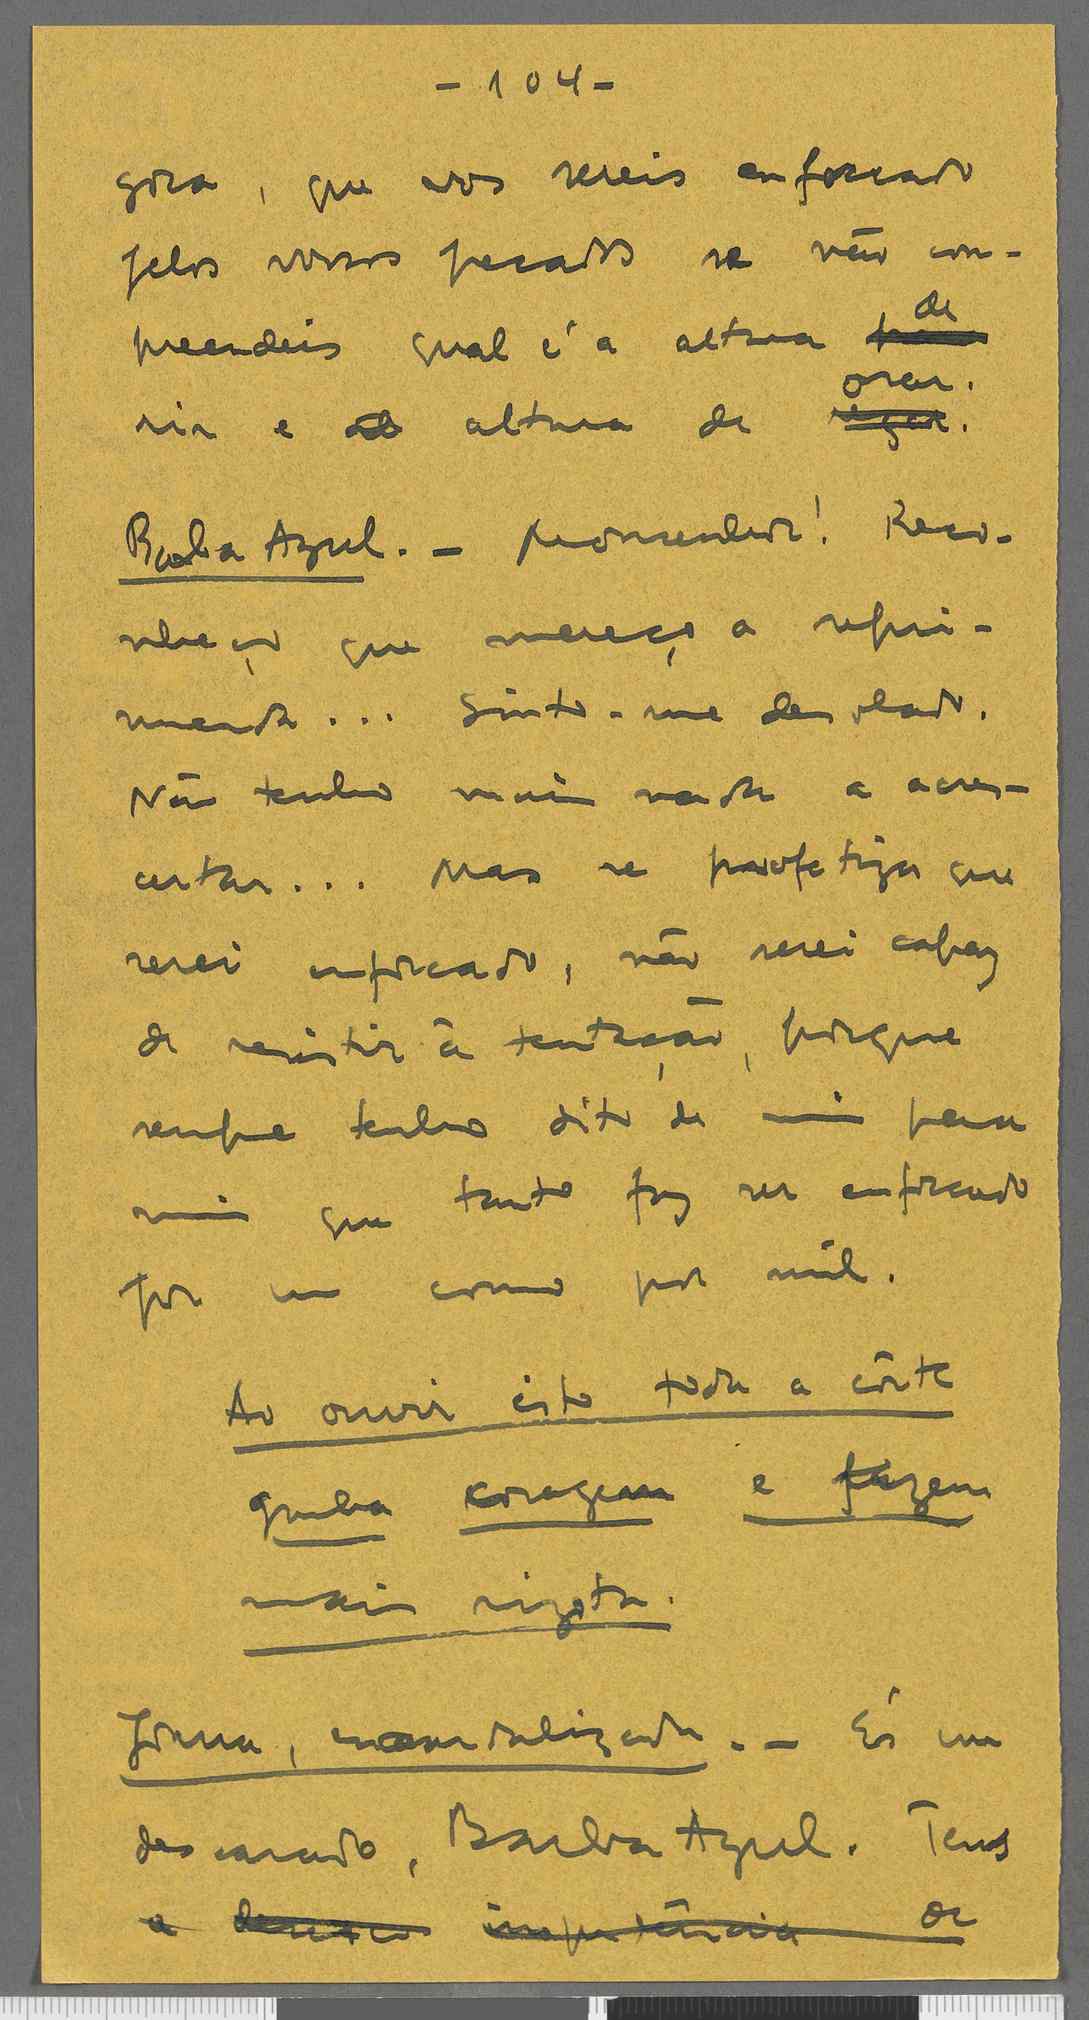 - 104 -
gora, que vos sereis enforcado
pelos vossos pecados se não com-
preendeis qual é a altura de
rir e a altura de orar.
Barba Azul. - Monsenhor! Reco-
nheço que mereço a repri-
menda... Sinto-me desolado.
Não tenho mais nada a acres-
centar... Mas se profetiza que
serei enforcado, não serei capaz
de resistir à tentação, porque
sempre tenho dito de mim para
mim que tanto faz ser enforcado
por um como por mil.
Ao ouvir isto toda a côrte
ganha coragem e fazem
mais risota.
Joana, escandalizada. - És um
descarado, Barba Azul. Tens
a impertinência de